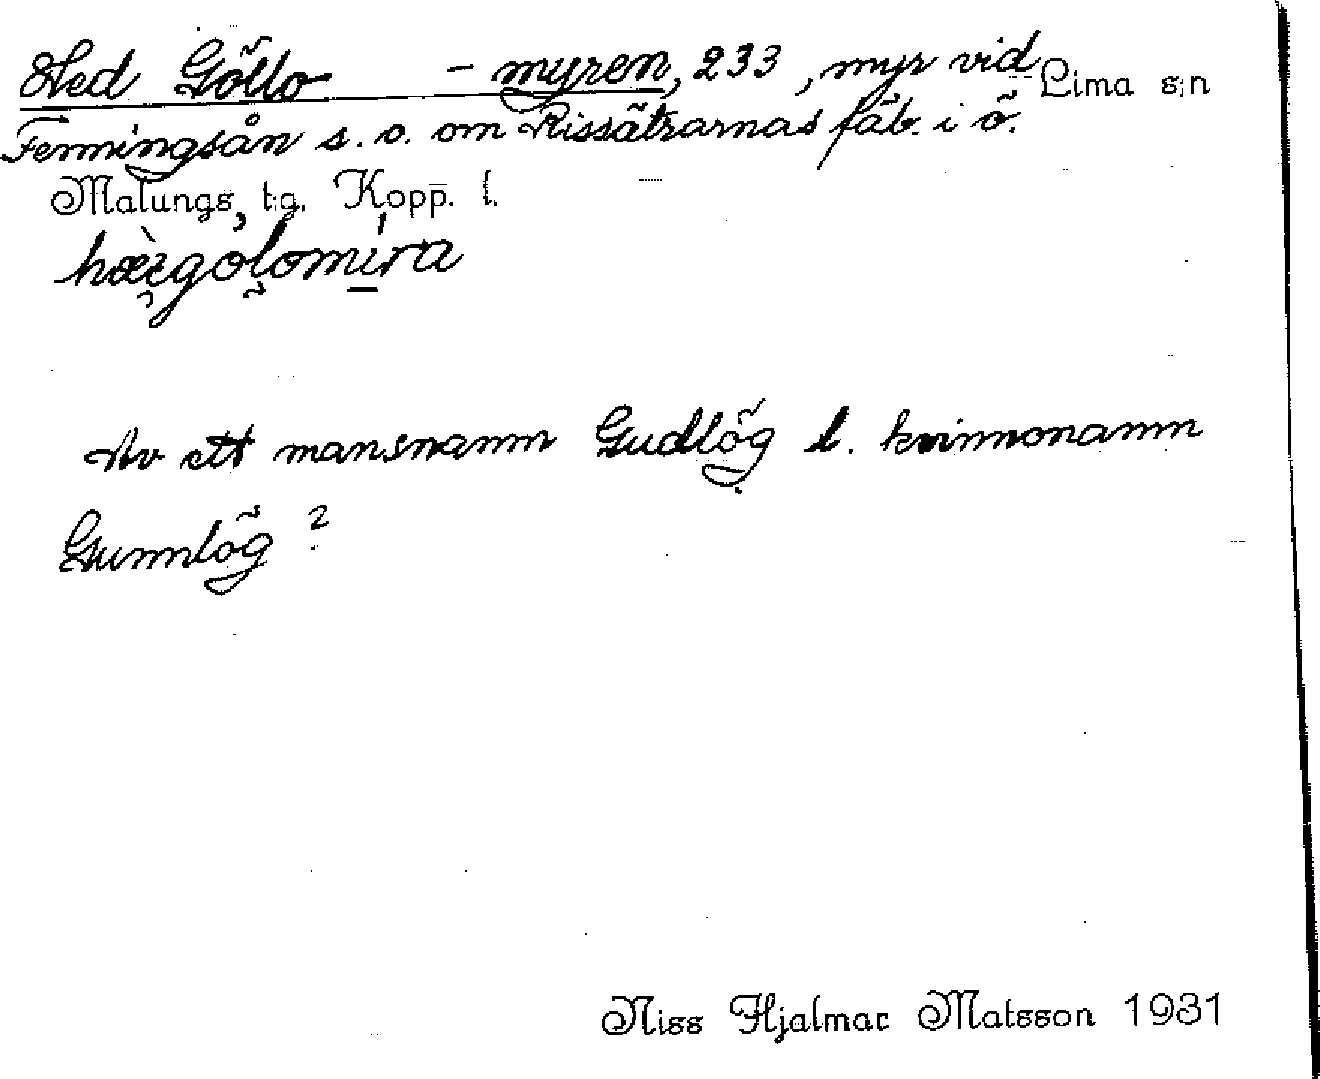 Ned Göllo - myren, 233, myr vid Lima s:n
Fenningsån s. o. om Rissätrarnas fäb. i ö.
Malungs, t:g. Kopp. l.
Av ett mansnamn Gudlög l. kvinnonamn
Gunnlög?
Niss Hjalmar Matsson 1931